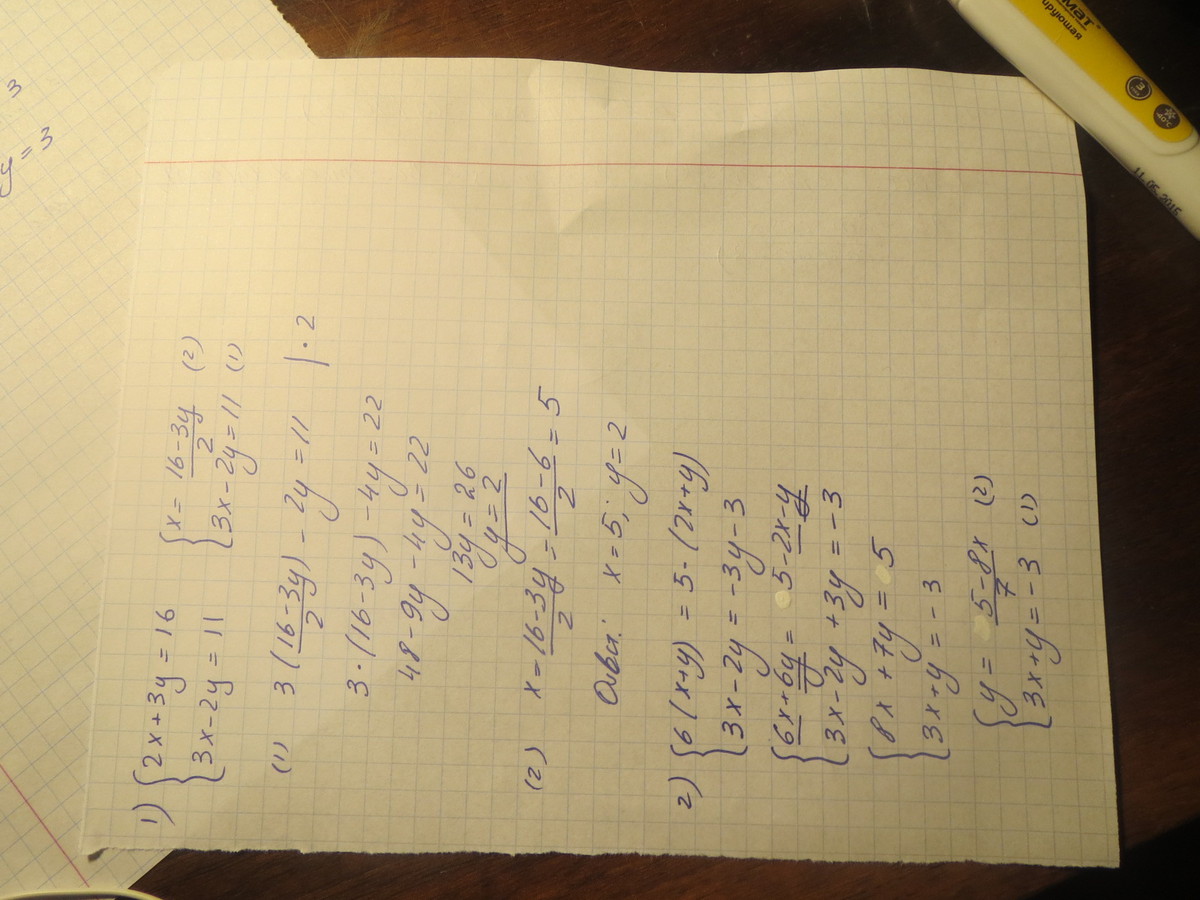 1) { 2x + 3y = 16 { x = (16 - 3y)/2 (2)
{ 3x - 2y = 11 { 3x - 2y = 11 (1)
(1) 3 (16 - 3y)/2 ) - 2y = 11 | · 2
3 · (16 - 3y) - 4y = 22
48 - 9y - 4y = 22
13y = 26
y = 2
(2) x = (16 - 3y)/2 = (16 - 6)/2 = 5
Ответ: x = 5; y = 2
2) { 6 (x + y) = 5 - (2x + y)
{ 3x - 2y = -3y - 3
{ 6x + 6y = 5 - 2x - y
{ 3x - 2y + 3y = -3
{ 8x + 7y = 5
{ 3x + y = -3
{ y = (5 - 8x)/7 (2)
{ 3x + y = -3 (1)
3
y = 3
мат
ирующая
3
40°C
11.05.2015